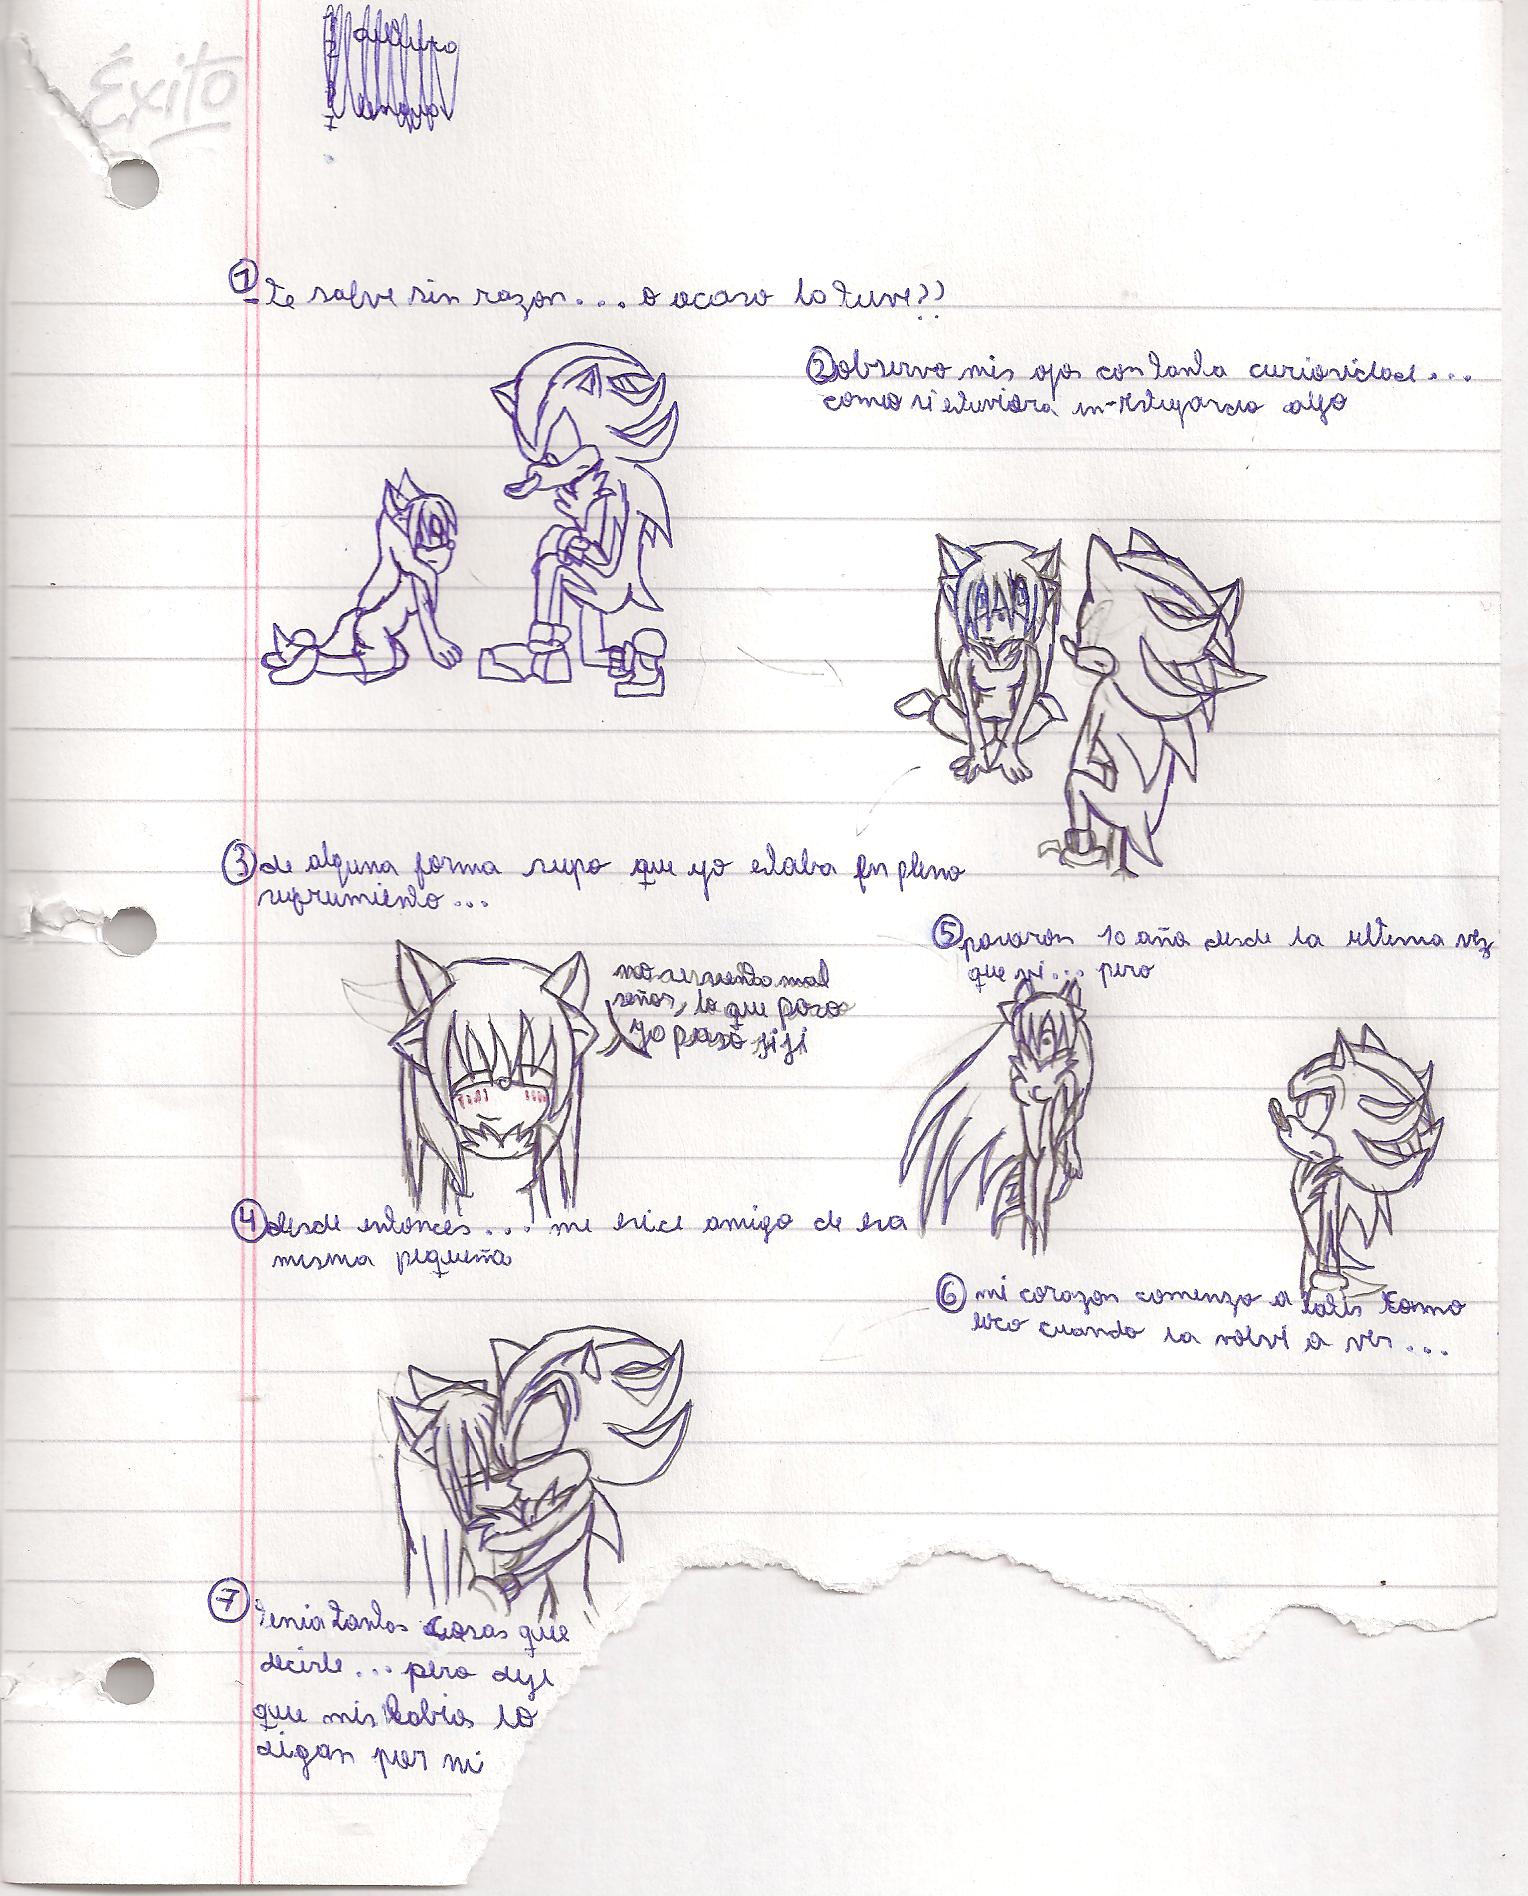 Éxito
1 te salve sin razon.... o acaso la tuve??
2 observo mis ojos con tanta curiovidad...
como si estuviera investigando algo
3 de alguna forma supo que yo estaba en pleno
sufrumiento...
no se sienta mal
señor, lo que paso
ya pasó jiji
4 desde entonces.... me hice amigo de esa
misma pequeña
5 pasaron 10 año desde la ultima vez
que vi... pero
6 mi corazon comenzo a latir como
loco cuando la volvi a ver...
7 tenia tantas cosas que
decirle... pero deje
que mis labios lo
digan por mi